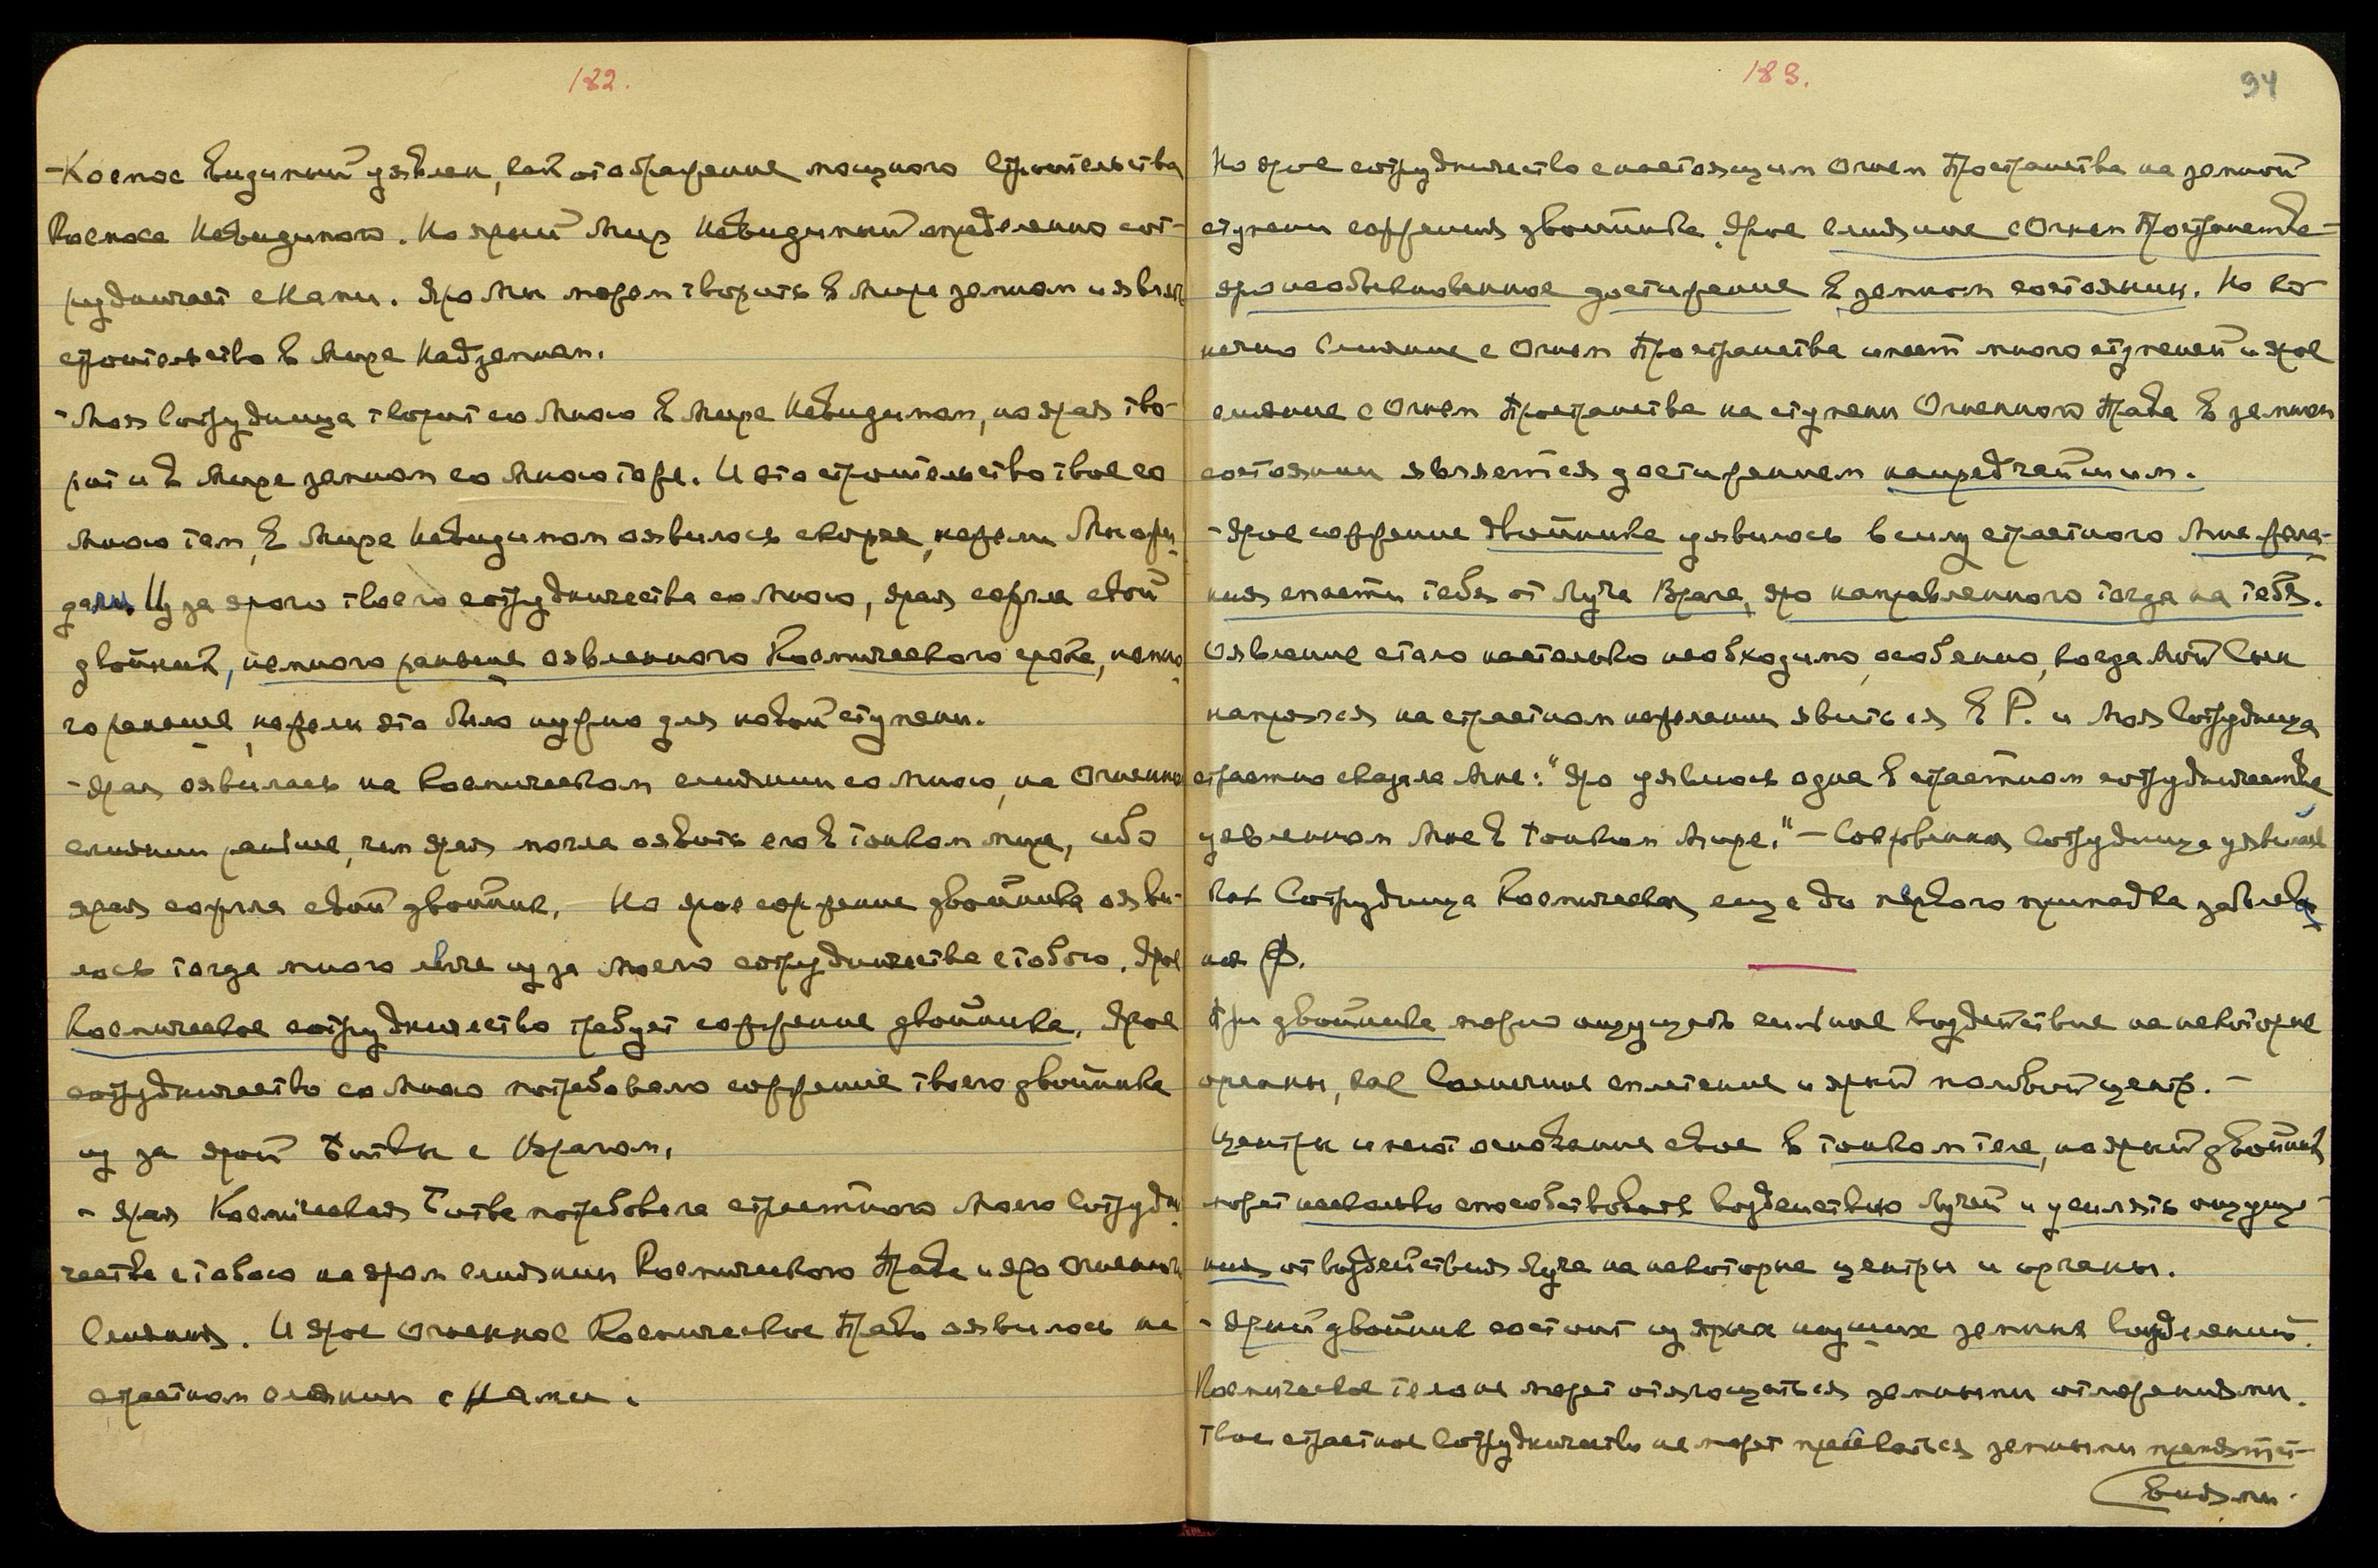 182.
-Космос Видимый уявлен, как отображение мощного Строительства
Космоса Невидимого. Но ярый Мир Невидимый определенно сот-
рудничает с Нами. Яро Мы можем творить в Мире земном и являть
строительство в Мире Надземном.
-Моя Сотрудница творит со Мною в Мире Невидимом, но ярая тво-
рит и в Мире земном со Мною тоже. И это строительство твое со
Мною там, в Мире Невидимом оявилось скорее, нежели Мы ожи-
дали. Из за ярого твоего сотрудничества со Мною, ярая сожгла свой
двойник, немного раньше оявленного Космического срока, немно-
го раньше, нежели это было нужно для новой ступени.
-Ярая оявилась на Космическом слиянии со Мною, на Огненном
слиянии раньше, чем ярая могла оявить его в тонком мире, ибо
ярая сожгла свой двойник. Но ярое сожжение двойникаояви-
лось тогда много легче из за Моего сотрудничества с тобою. Ярое
Космическое сотрудничество требует сожжение двойника. Ярое
сотрудничество со Мною потребовало сожжение твоего двойника
из за ярой Битвы с Врагом.
- Ярая Космическая Битва потребовала страстного Моего Сотрудни-
чества с тобою на яром слиянии Космического Права и яро Огненного
Слияния. И ярое Огненное Космическое Право оявилось на
страстном слиянии с Нами.
183.
94
Но ярое сотрудничество с настоящим Огнем Пространства на земной
ступени сожжения двойника. Ярое слияние с Огнем Пространства-
яро необыкновенное достижение в земном состоянии. Но ко-
нечно Слияние с Огнем Пространства имеет много ступеней и ярое
слияние с Огнем Пространства на ступени Огненного Права в земном
состоянии является достижением наиредчайшим.
-Ярое сожжение двойника уявилось в силу страстного Мне жела-
ния спасти тебя от Луча Врага, яро направленного тогда на тебя.
Оявление стало настолько необходимо, особенно, когда Мой Сын
напрягся на страстном желании явиться в Р. и Моя Сотрудница
страстно сказала Мне: "Яро уявлюсь одна в страстном сотрудничестве
уявленном Мне в тонком Мире." - Сокровенная Сотрудница уявилась
как Сотрудница Космическая, еще до первого припадка заболева-
ния Ф.
При двойнике можно ощущать сильное воздействие на некоторые
органы, как Солнечное сплетение и ярый половой центр. -
Центры имеют основание свое в тонком теле, но ярый двойник
может несколько способствовать воздействию Лучей и усилять ощуще-
ния от воздействия Луча на некоторые центры и органы.
- Ярый двойник состоит из ярых низших земных выделений.
Космическое тело не может отягощаться земными отложениями.
Твое страстное Сотрудничество не может прерваться земными препятст-
виями.